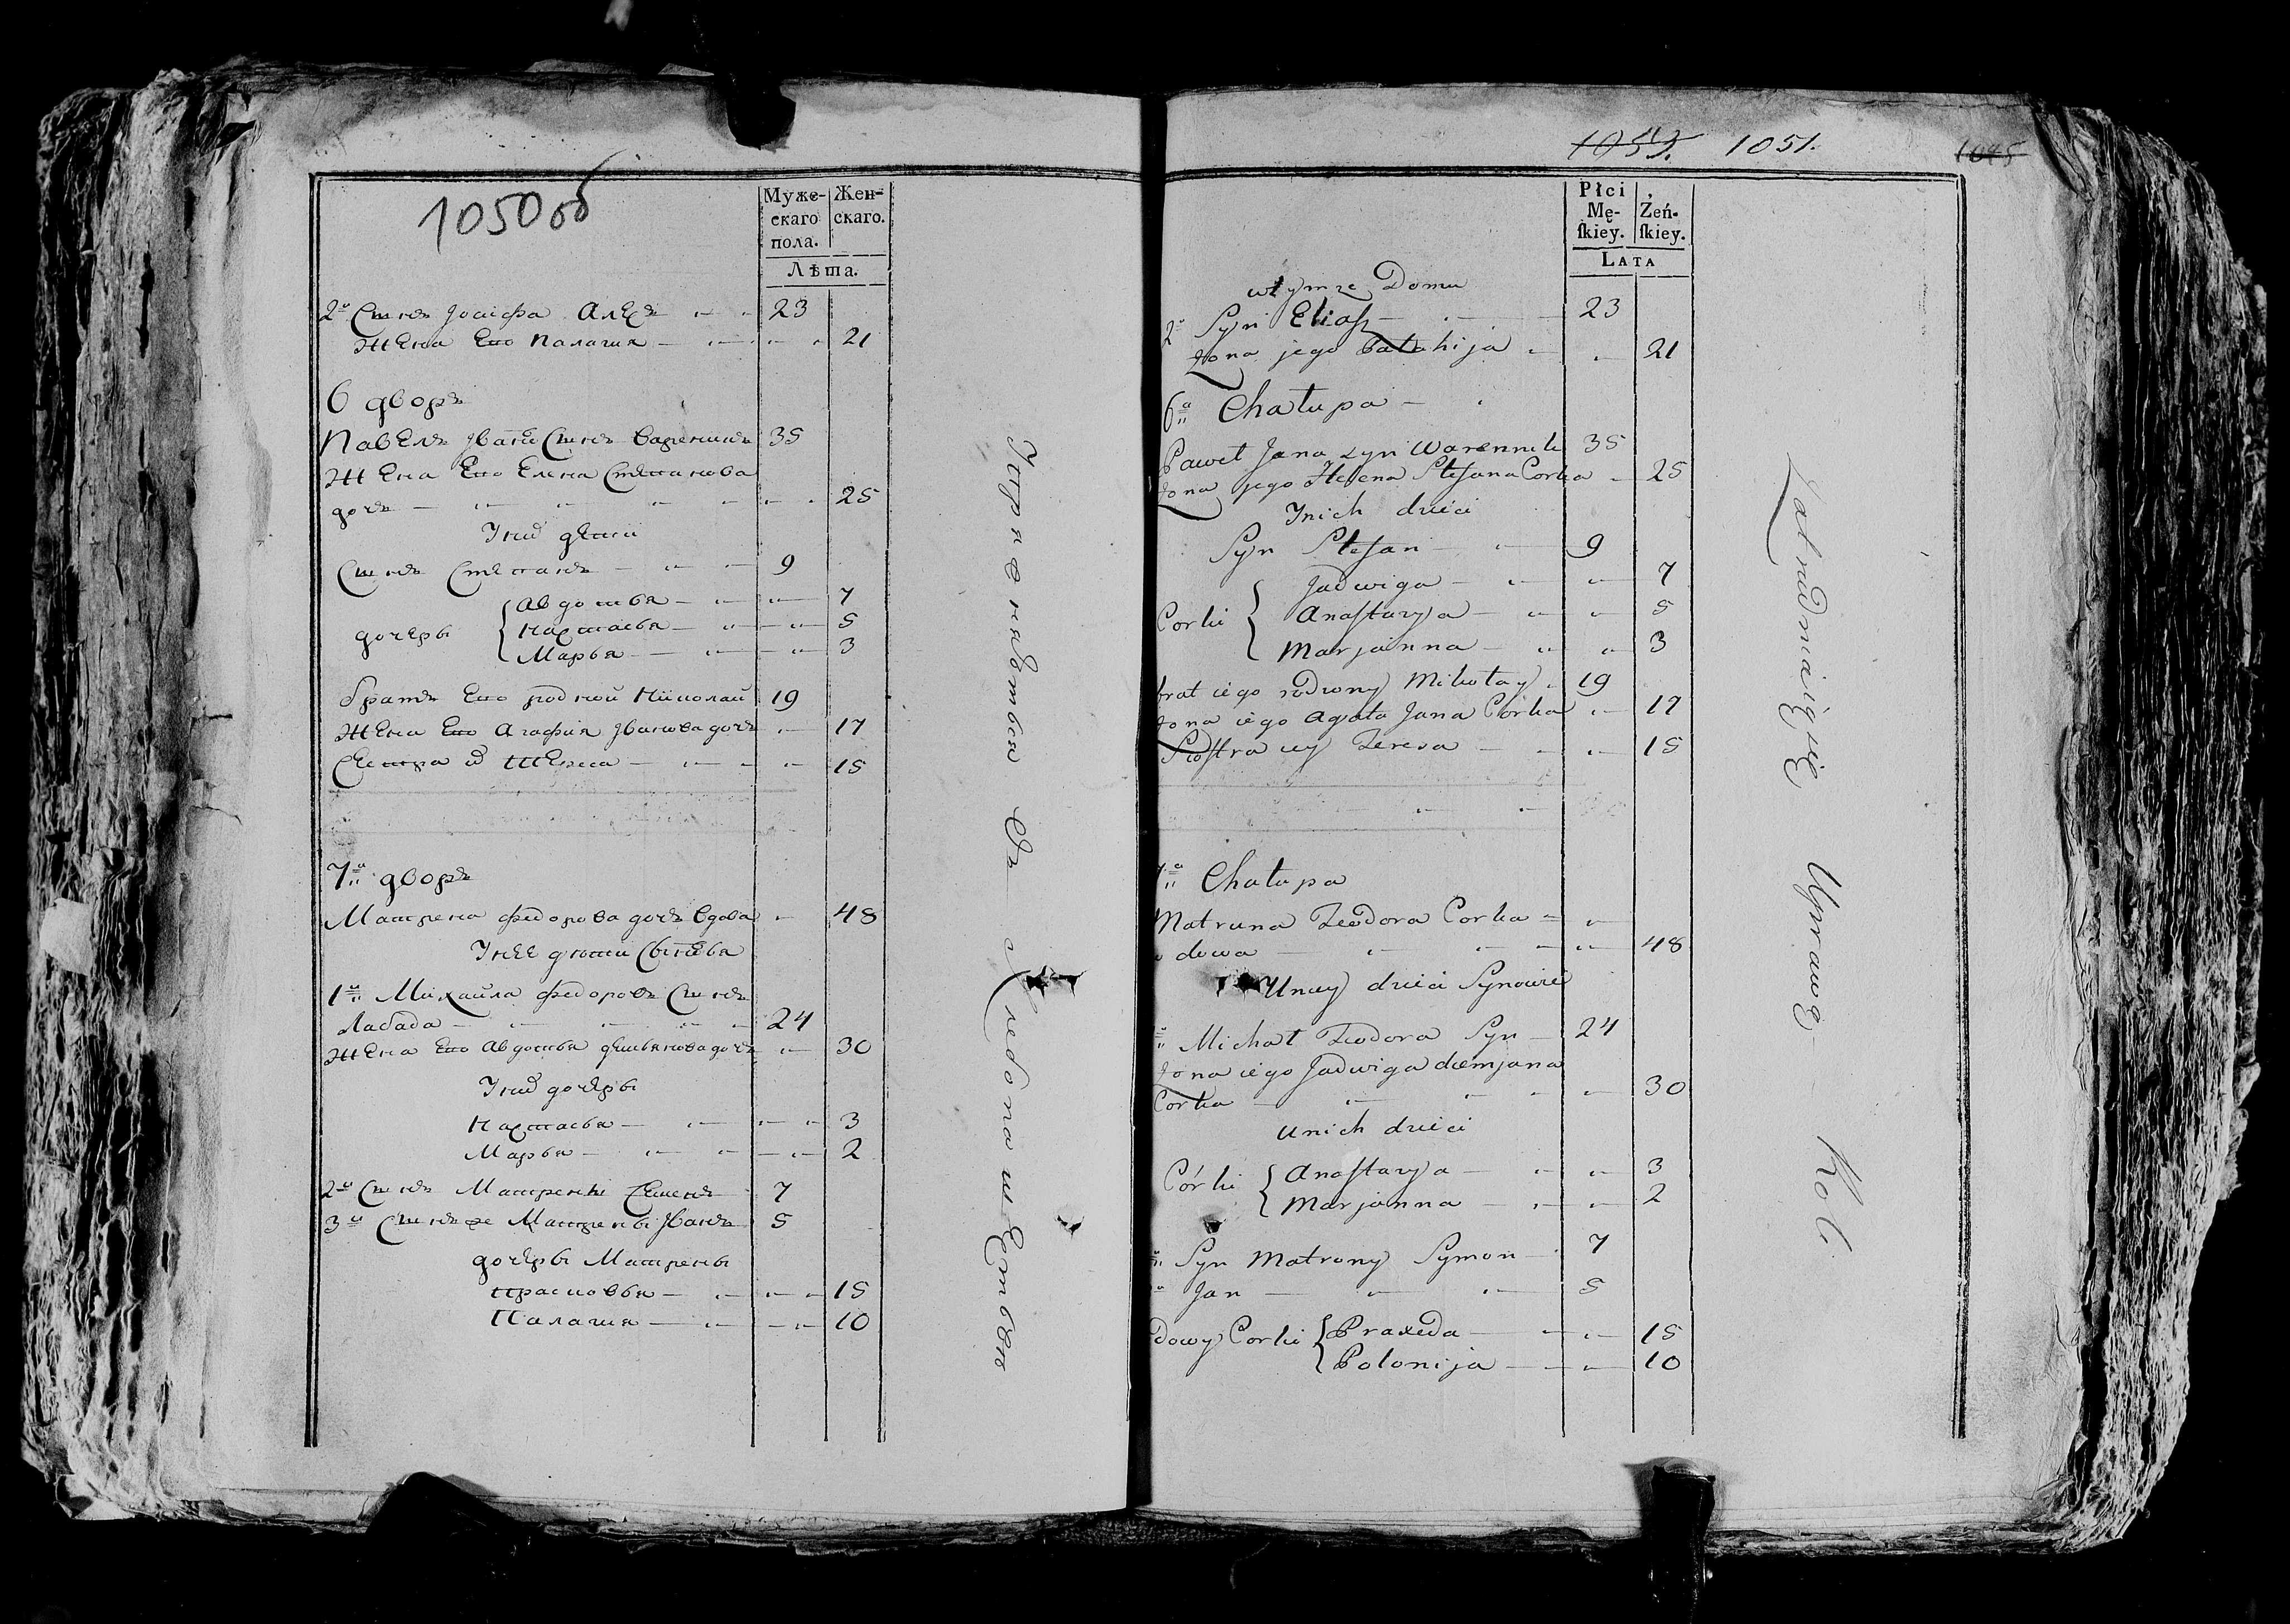 1050об
Муже-
скаго
пола.
Жен-
скаго.
Лѣта.
2й Сынъ Јосифа Алеѯ 23
Жена Его Палагия 21
6 дворъ
Павелъ Јванъ Сынъ Вареникъ 35
Жена Его Елена Степанова
дочь 25
У них дети
Сынъ Степанъ 9
дочеры
Авдотья 7
Настасья 5
Марья 3
братъ Его родной Николай 19
Жена Его Агафия Јванова дочь 17
Сестра Тереса 15
7й дворъ
Матрена Федорова дочь вдова 48
У нее дети Сыновья
1й Михайла Федоровъ Сынъ
Лабада 24
Жена Его Авдотья демьянова дочь 30
У них дочеры
Настасья 3
Марья 2
2й Сынъ Матрены Семенъ 7
3й Сынъ же Матрены Јванъ 5
дочеры Матрены
Прасковья 15
Палагия 10
Упражняются в Хлебопашестве
1051.
Płci
Mę-
ſkiey.
Żeń-
ſkiey.
LATA
w tymze Domu
2й Syn Eliaſz 23
Żona jego Palahija 21
6a Chałupa
Paweł Jana Syn Warennik 35
Żona jego Helena Stefana Corka 25
Jnich dzieci
Syn Stefan 9
Corki
Jadwiga 7
Anaſtazya 5
Marjanna 3
brat iego rodzony Mikołay 19
Żona iego Agata Jana Córka 17
Sioſtra iey Teresa 15
7a Chałupa
Matruna Teodora Corka
dowa 48
Uniey dzieci Synowie
Michał Teodora Syn 24
Żona iego Jadwiga diemjana
Corka 30
Unich dzieci
Córki
Anaſtazya 3
Marjanna 2
Syn Matrony Symon 7
Jan 5
dowy Corki
Praxeda 15
Polonija 10
Zatrudniaią się Uprawą Roli